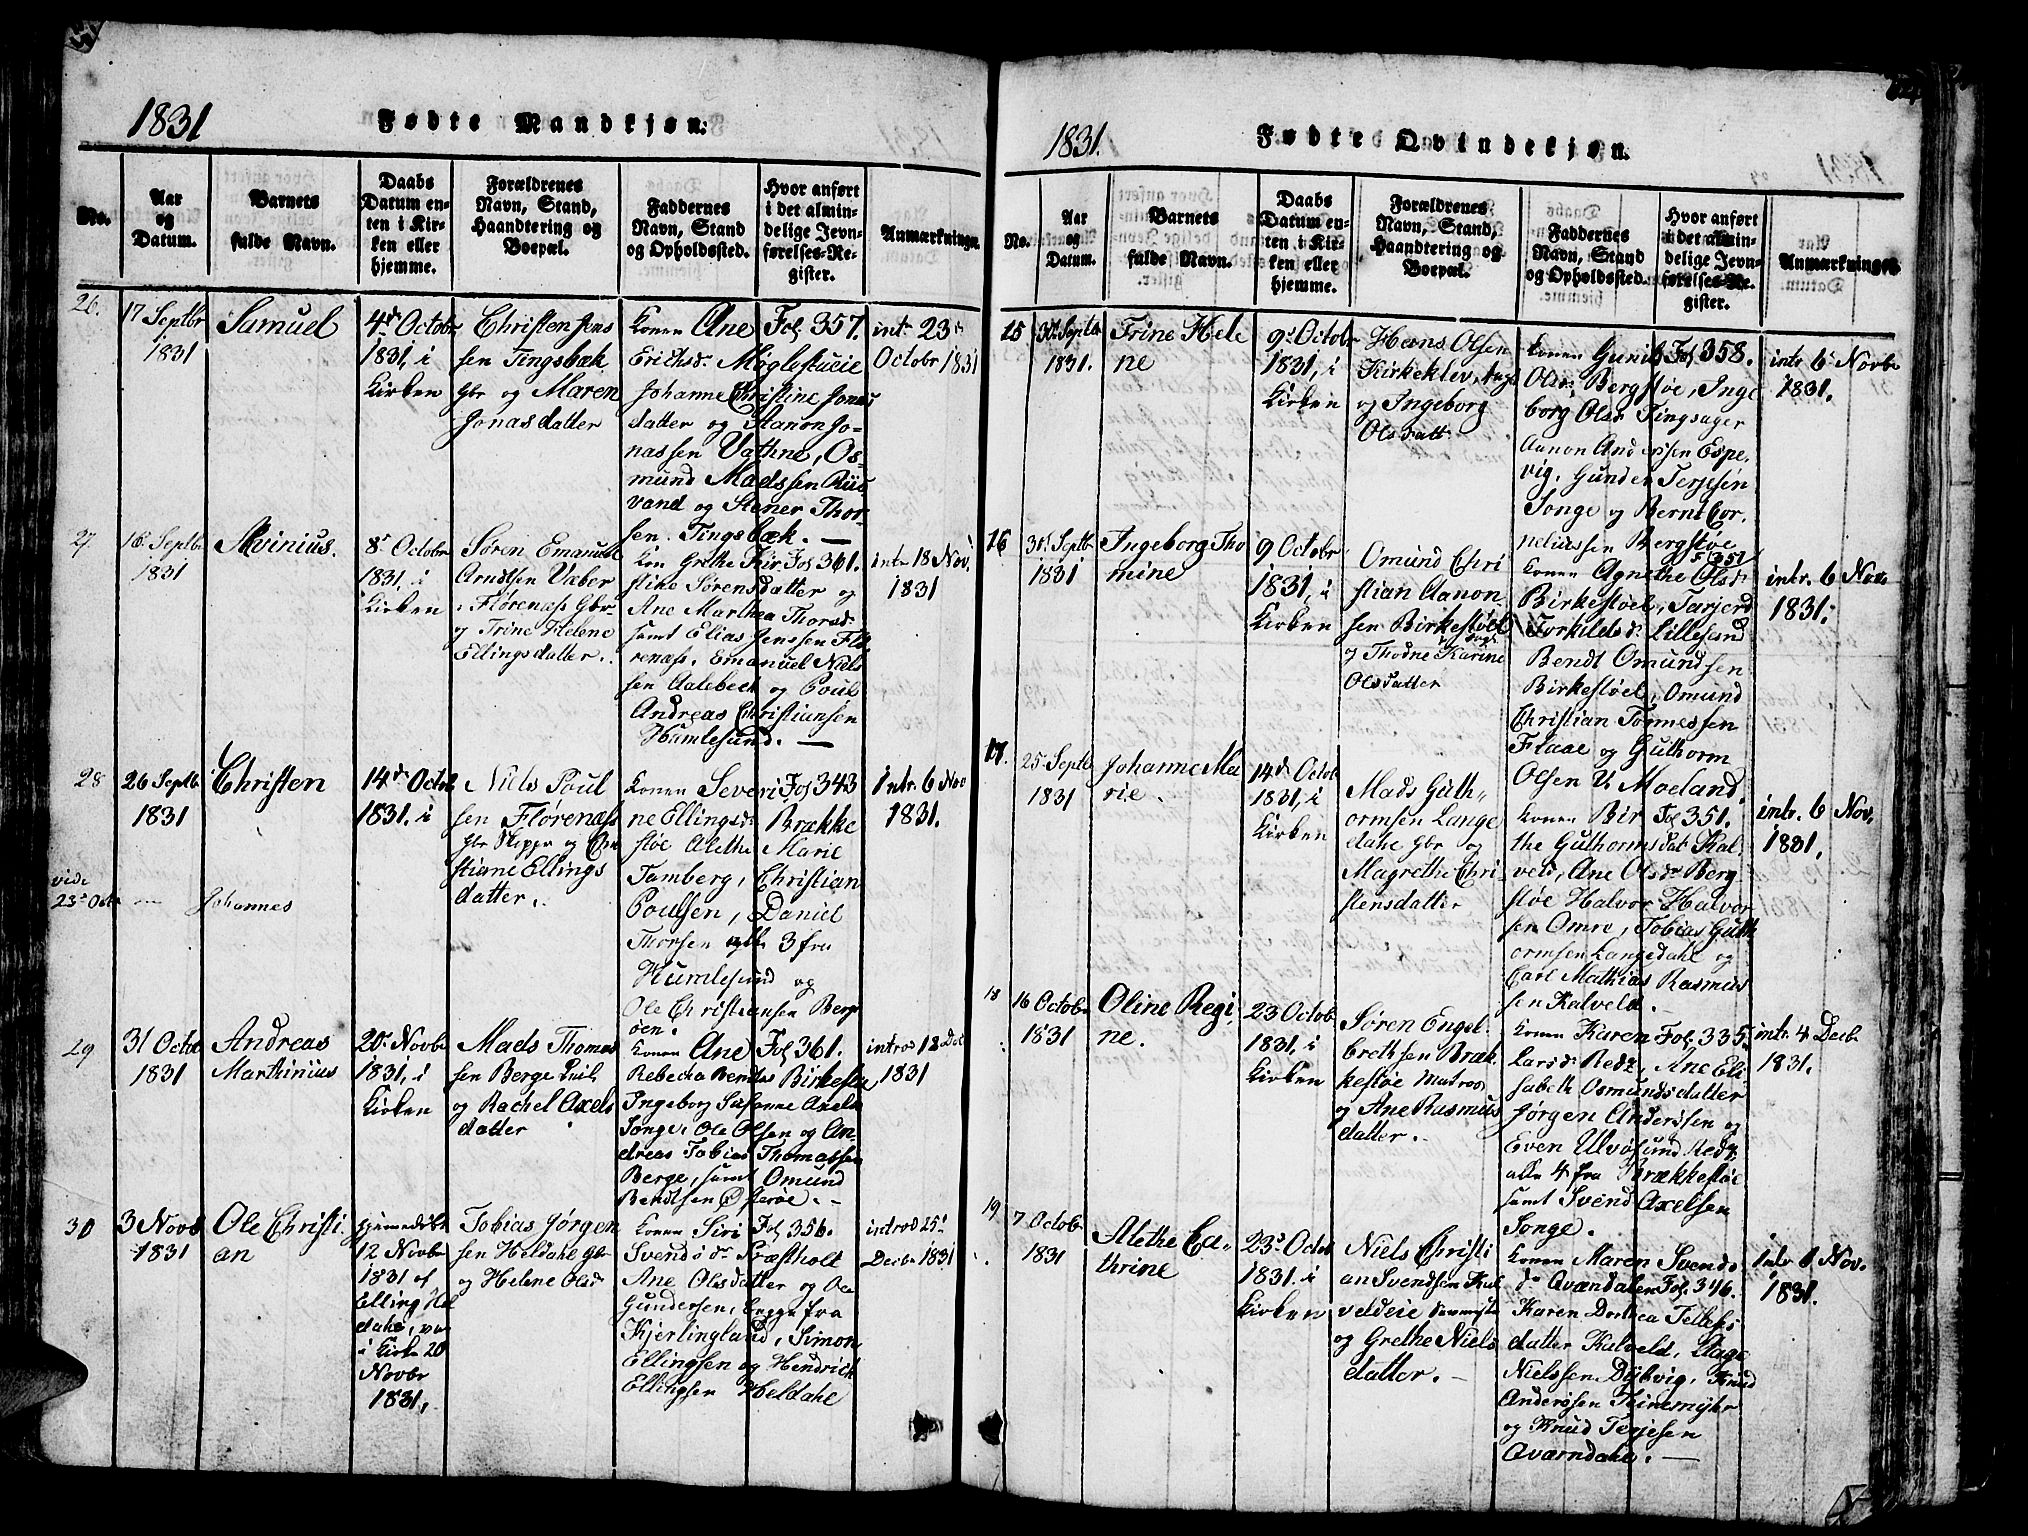 1831
Fødte Mandkjøn:
No.
Aar
og
Datum.
Barnets
fulde Navn.
Daabs
Datum en-
ten i Kir-
ken eller
hjemme.
Forældrenes
Navn, Stand,
Haandtering og
Boepæl.
Faddernes
Navn, Stand
og Opholdssted.
Hvor anført
i det almin-
delige Jevn-
førelses-Re-
gister.
Anmærkninger.
26.
17 Septbr
1831
Samuel
4de Octobr
1831, i
Kirken
Christen Jens
sen Tingsbæk
Gbr og Maren
Jonasdatter
Konen Ane
Erichsd. Møglestueie
Johanne Christine Jonas
datter og Aanon Jo-
nassen Vathne, Os-
mund Madssen Riis
vand og Stener Thor-
sen Tingsbæk. —
Fol 357.
intr 23
Octobr 1831
27.
16 Septbr
1831
Alvinius.
8de Octobr
1831, i
Kirken
Søren Emanuel
Arndtsen Væber
i Flørenæss Gbr
og Trine Helene
Ellingsdatter.
Kon Grethe Kir
stine Sørensdatter og
Ane Marthea Thorsd.
samt Elias Jenssen Flø
renæss. Emanuel Niels
sen Aalebeck og Poul
Andreas Christiansen
Humlesund. —
Fol 361.
intr 18 Nov.
1831
28
26 Septbr
1831
Christen
14de Octbr
1831. i
Niels Poul
sen Flørenæss
Gbr Skippr og Chri
stiane Ellings
datter.
Konen Severi
ne Ellingsd. Brække
støe Alethe Marie
Tamberg, Christian
Poulsen, Daniel
Thorsen alle 3 fra
Humlesund og
Ole Christiansen Berg
øen.
Fol 343
intr. 6 Nov
1831.
vide
23de Octr
—
Johannes
29
31 Octbr
1831
Andreas
Marthinius
20de Novbr
1831, i
Kirken
Mads Thomas
sen Berge
og Rachel Axels
datter
Konen Ane
Rebecha Bentsd. Birkestø
Ingeborg Susanne Axelsd
Songe, Ole Olsen og An
dreas Tobias Thomassen
Berge, samt Omund
Bendtsen Østerøe. —
Fol 361.
introd 12 Dec
1831
30
3 Novb
1831
Ole Christi
an
hjemmedøbt
12 Novbr
1831 af
Elling Hel
dahl,
i Kirke 20
Novbr
1831,
Tobias Jørgen
sen Heldahl Gbr
og Helene Olsd
Konen Siri
Svendsdr Præstholt
Ane Olsdatter og Ole
Gundersen, begge fra
Kjerlingland, Simon
Ellingsen og Hendrich
Ellingsen Heldahl
Fol 356.
introd 25de
Decbr 1831
1831.
Fødte Qvindekjøn.
No.
Aar
og
Datum.
Barnets
fulde Navn.
Daabs
Datum en-
ten i Kir-
ken eller
hjemme.
Forældrenes
Navn, Stand,
Haandtering og
Boepæl.
Faddernes
Navn, Stand
og Opholdssted.
Hvor anført
i det almin-
delige Jevn-
førelses-Re-
gister.
Anmærkninger.
15
30 Septbr
1831.
Trine Hele
ne
9de Octobr
1831, i
Kirken
Hans Olsen
Kirkeklev,
og Ingeborg
Olsdatt
Konen Gunild
Olsd Bergstøe, Inge
borg Olsd Tingsager
Aanon Anderssen Espe-
vig, Gunder Terjesen
Songe og Bernt Cor-
neliussen Bergstøe
Fol 358.
intr 6 Novbr
1831.
16
30 Septbr
1831
Ingeborg Tho
mine
9 Octobr
1831, i
Kirken
Omund Chri
stian Aanon
sen Birkestøel
og Thodne Karine
Olsdatter
Konen Agnethe Olsd.
Birkestøel, Tarjerd
Torkildsd. Lillesund
Bendt Omundsen
Birkestøel, Omund
Christian Tønnessen
Flaae og Guthorm
Olsen V. Moeland.
F 351
intr. 6 Nov
1831.
17.
25 Septbr
1831
Johanne Ma
rie
14de Octob
1831, i
Kirken
Mads Guth-
ormsen Lange
dahl Gbr og
Magrethe Chri-
stensdatter
Konen Bir
the Guthormsdat Kal-
veld, Ane Olsdr Berg-
støe Halvor Halvor
sen Omre, Tobias Guth
ormsen Langedahl og
Carl Mathias Rasmus
sen Kalveld.
Fol 351.
intr. 6 Nov.
1831.
18
16 Octobr
1831
Oline Regi
ne.
23 Octobr
1831, i
Kirken
Søren Engel-
brethsen Bræk-
kestøe Matros
og Ane Rasmus
datter.
Konen Karen
Larsd. Redz, Ane Eli
sabeth Osmundsdatter
Jørgen Anderssen og
Even Ulvøsund Redz
alle 4 fra Brækkestøe
samt Svend Axelsen
Songe.
Fol 335
intr. 4 Decbr
1831.
19
7 Octobr
1831
Alethe Ca-
thrine
23de Octob
1831. i
Kirken
Niels Christi
an Svendsen Kal
veldeie
og Grethe Niels
datter. —
Konen Maren Svends
dr Qvændalen
Karen Dorthea Tellefs
datter Kalveld, Aage
Nielssen Dybvig, Knud
Anderssen Steinemyhr
og Knud Terjesen
Qværndahl. —
Fol. 346.
intr 1 Nov.
1831.